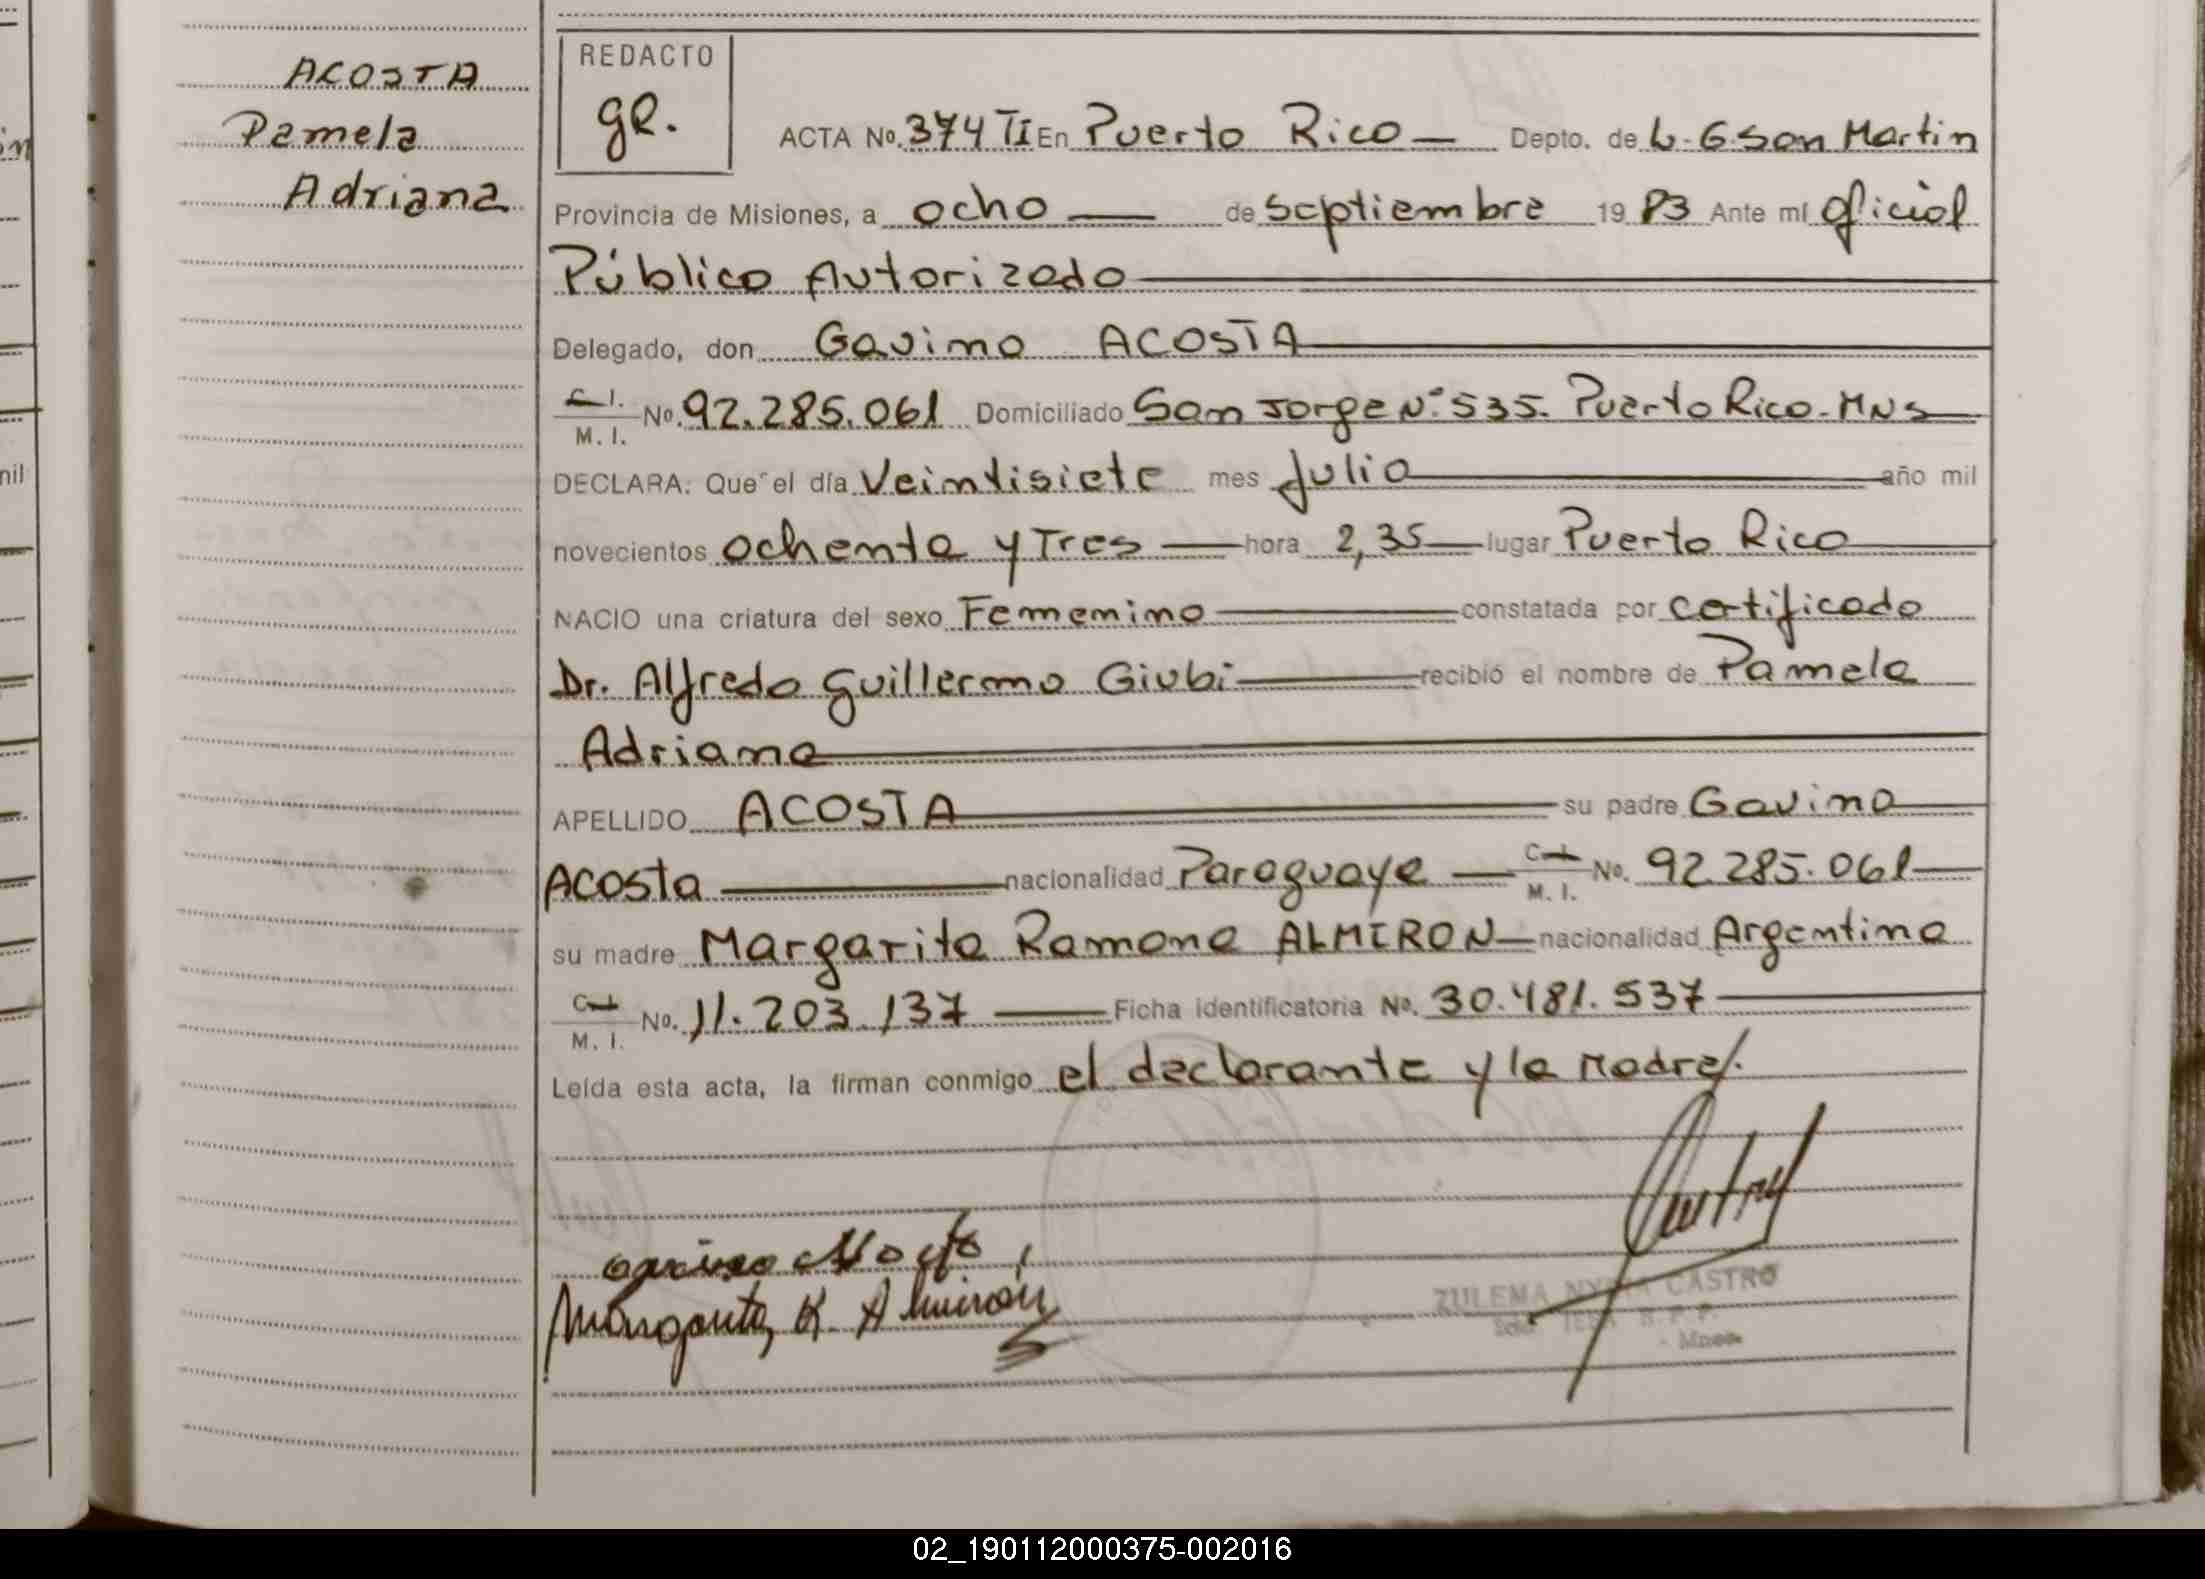 ACOSTA
Pamela
Adriana
REDACTO
gr.
ACTA No. 374 TI En Puerto Rico — Depto. de L. G. San Martin
Provincia de Misiones, a ocho — de septiembre 1983 Ante mi oficial
Público Autorizado
Delegado, don Gavino ACOSTA
C. I. M. I. No. 92.285.061 Domiciliado San Jorge Nº 535. Puerto Rico - MNS
DECLARA: Que el día Veintisiete mes Julio año mil
novecientos ochenta y Tres — hora 2,35 — lugar Puerto Rico
NACIO una criatura del sexo Femenino constatada por certificado
Dr. Alfredo Guillermo Giubi recibió el nombre de Pamela
Adriana
APELLIDO ACOSTA su padre Gavino
Acosta nacionalidad Paraguaya — C. I. M. I. No. 92.285.061
su madre Margarita Ramona ALMIRON nacionalidad Argentina
C. I. M. I. No. 11.203.137 — Ficha identificatoria No. 30.481.537
Leída esta acta, la firman conmigo el declarante y la Madre/.
Margarita R. Almirón
ZULEMA CASTRO
02_190112000375-002016